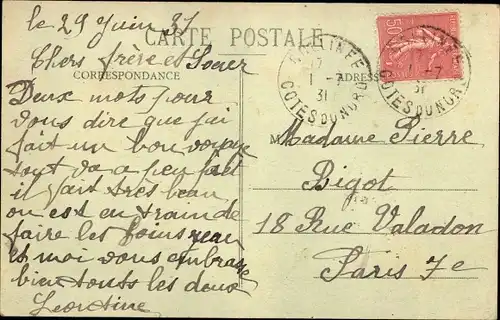 le 29 Juin 31
CARTE POSTALE
Chers frère et Soeur
CORRESPONDANCE
ADRESSE
Deux mots pour
vous dire que jai
fait un bon voyage
tout va a peu fait
il fait très beau
on est en train de
faire les foins Jean
et moi vous embrasse
bien touts les deux
Leontine
50
17
1 -7
31
COTES DU NORD
-7
31
COTES DU NORD
Madame Pierre
Bigot
18 Rue Valadon
Paris 7e